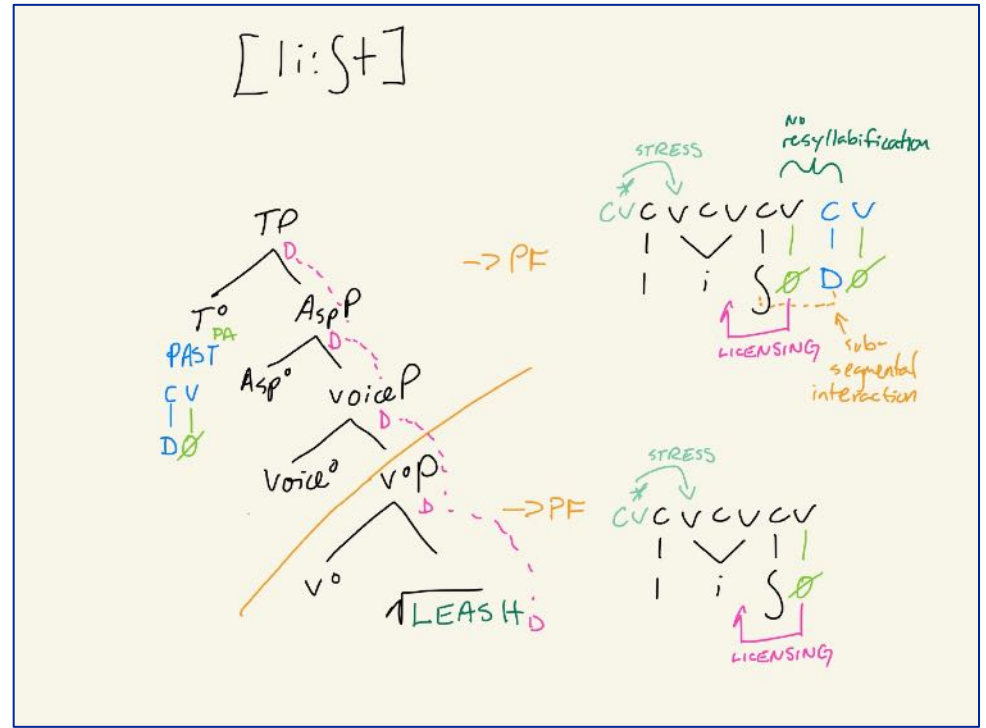 [li:ʃt]
TP
D
T° AspP
PA D
PAST Asp° voiceP
C V D
D Ø Voice° v°P
D
v° √LEASH D
-> PF
No
resyllabification
STRESS
*
C V C V C V C V C V
l i ʃ Ø D Ø
LICENSING
sub-
segmental
interaction
-> PF
STRESS
*
C V C V C V C V
l i ʃ Ø
LICENSING